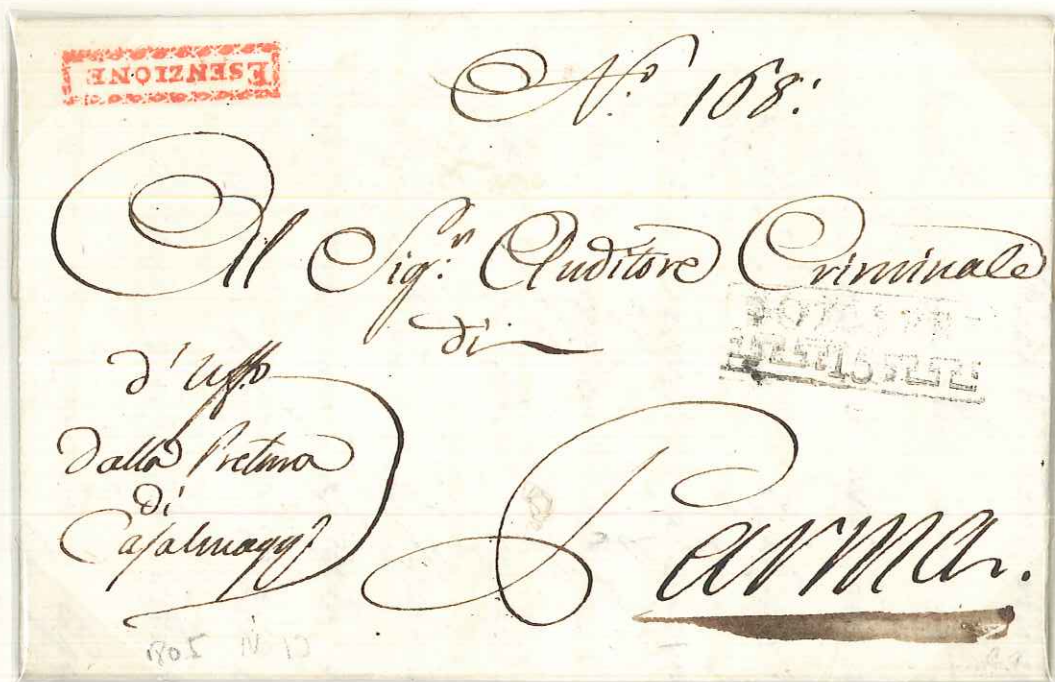 ESENZIONE
N.º 168:
Al Sig.r Auditore Criminale
di
d'Uffo
Dalla Pretura
di
Casalmagg.e
Parma.